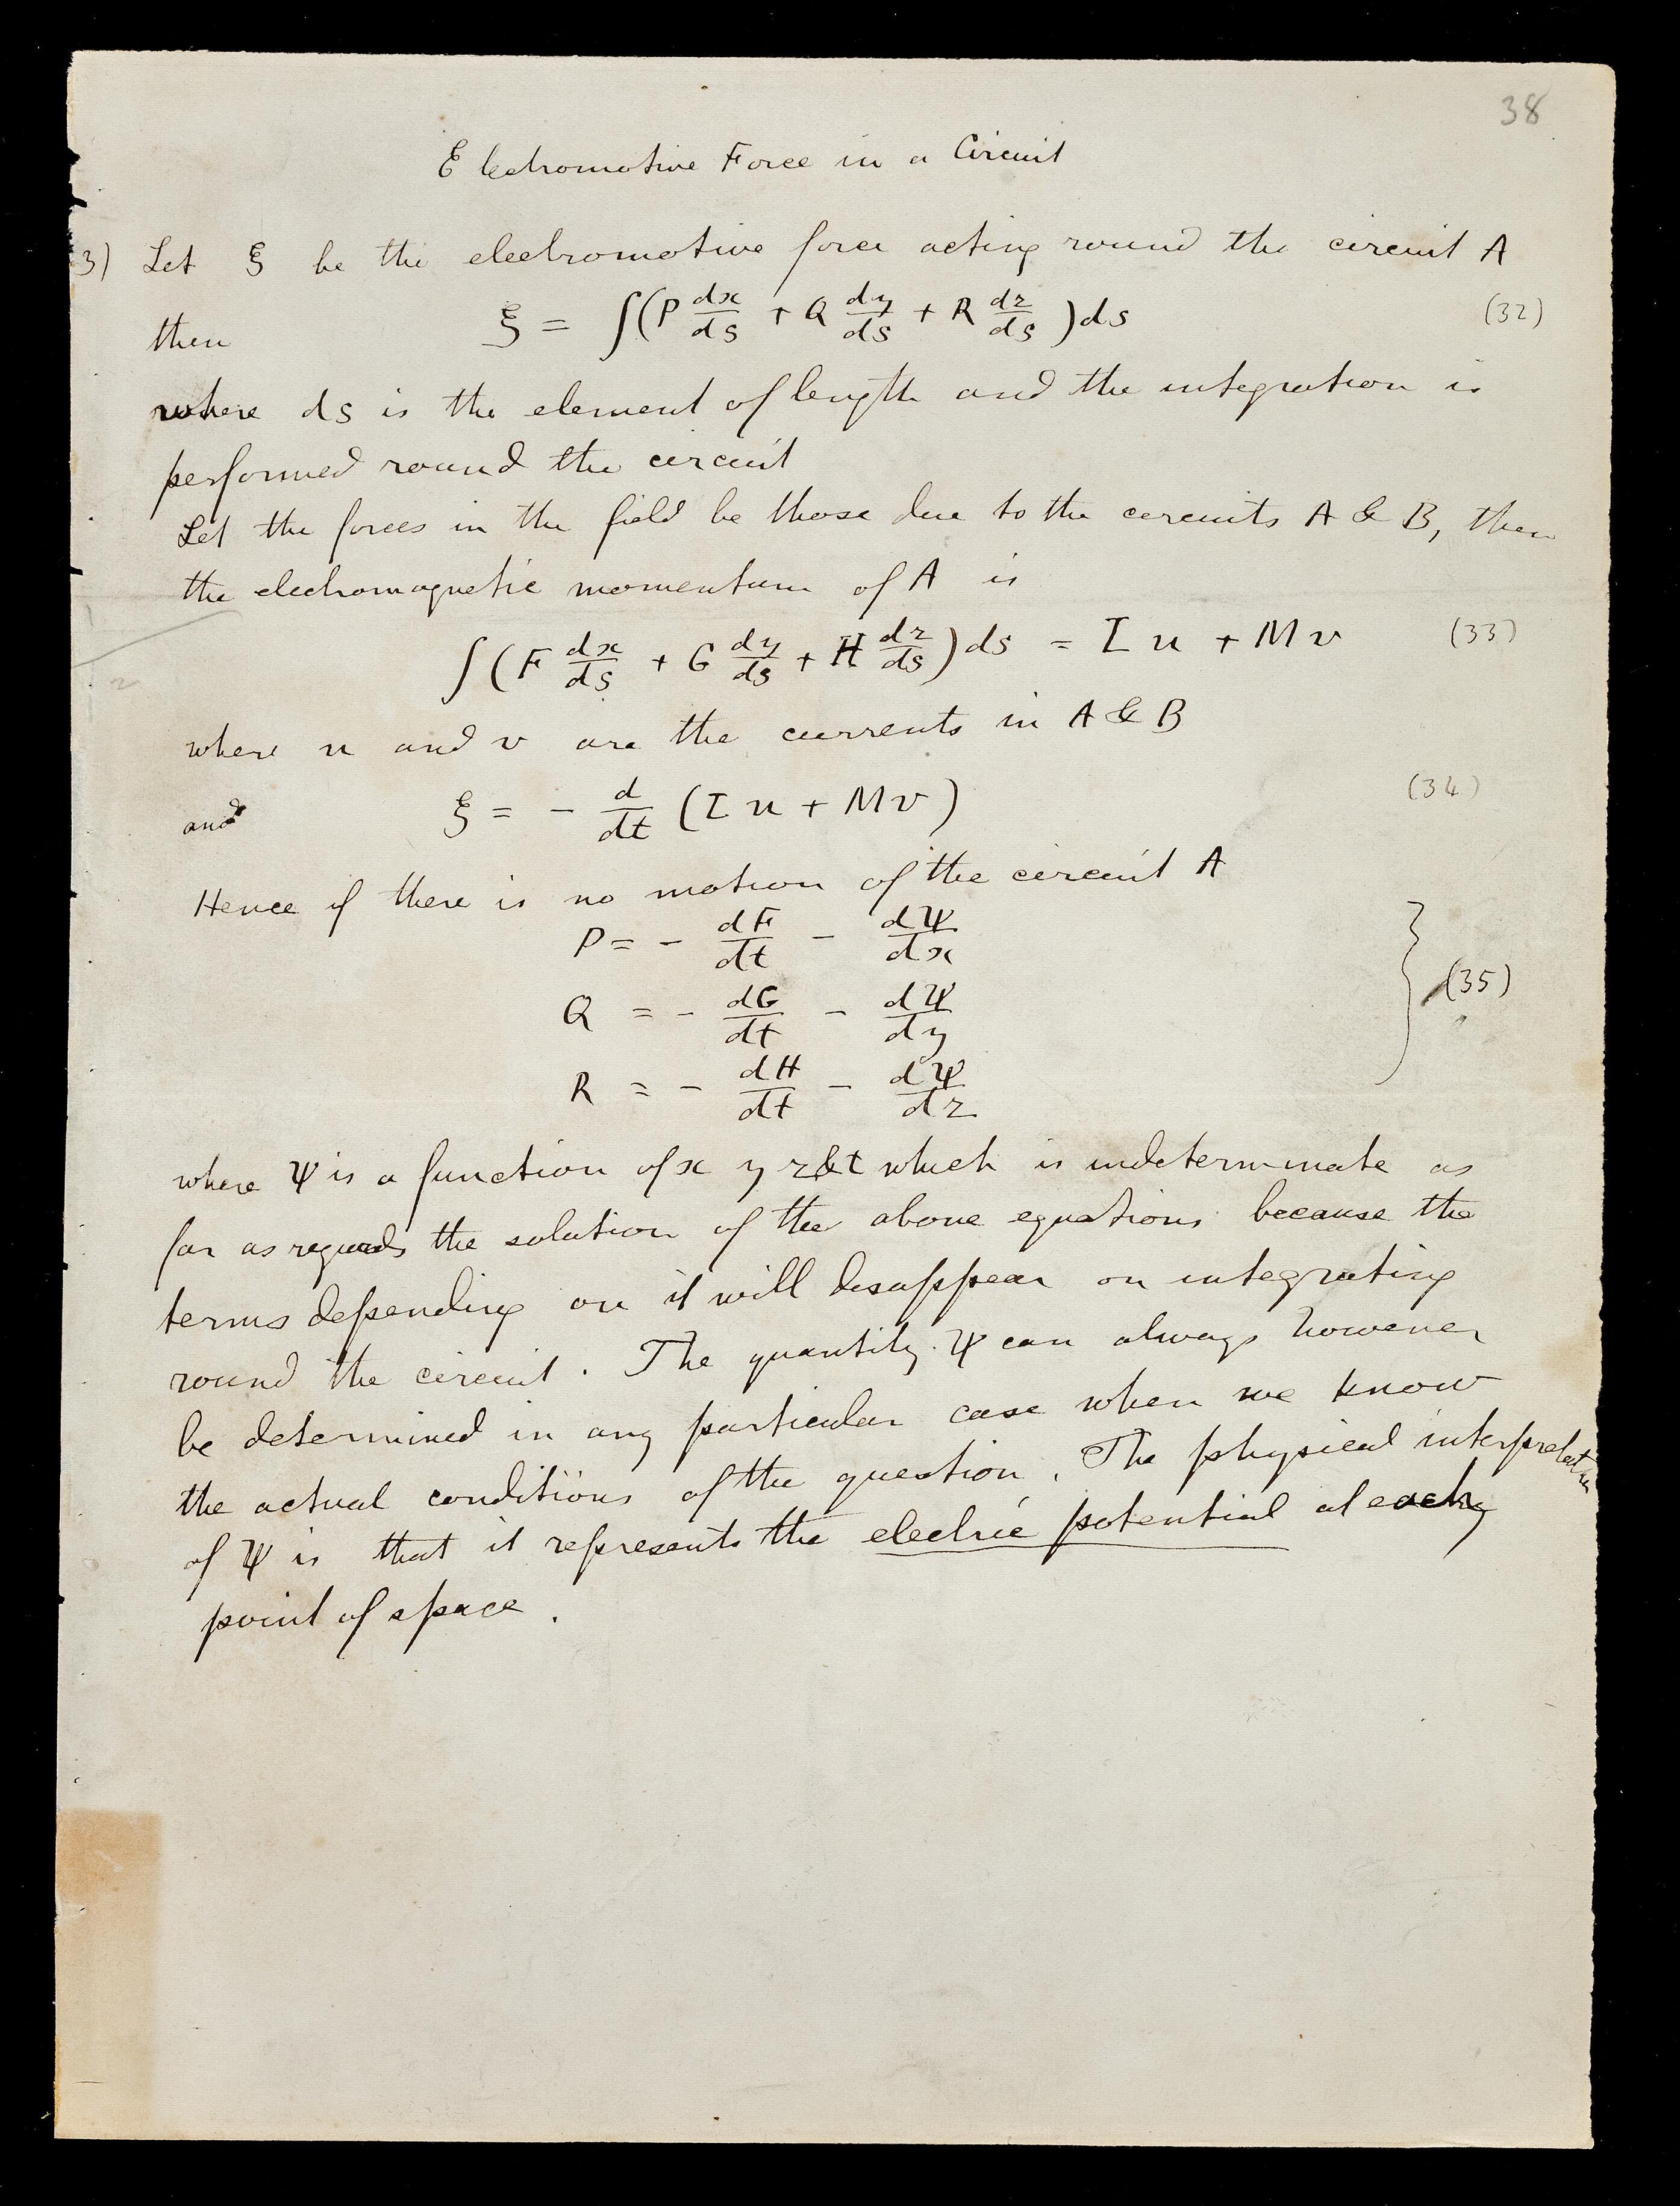 38
Electromotive Force in a Circuit
3) Let ξ be the electromotive force acting round the circuit A
then ξ = ∫(P dx/ds + Q dy/ds + R dz/ds) ds (32)
where ds is the element of length and the integration is
performed round the circuit
Let the forces in the field be those due to the circuits A & B, then
the electromagnetic momentum of A is
∫(F dx/ds + G dy/ds + H dz/ds) ds = L u + M v (33)
where u and v are the currents in A & B
and ξ = - d/dt (L u + M v) (34)
Hence if there is no motion of the circuit A
P = - dF/dt - dΨ/dx
Q = - dG/dt - dΨ/dy } (35)
R = - dH/dt - dΨ/dz
where Ψ is a function of x y z & t which is indeterminate as
far as regards the solution of the above equations because the
terms depending on it will disappear on integrating
round the circuit. The quantity Ψ can always however
be determined in any particular case when we know
the actual conditions of the question. The physical interpretation
of Ψ is that it represents the electric potential at each
point of space.